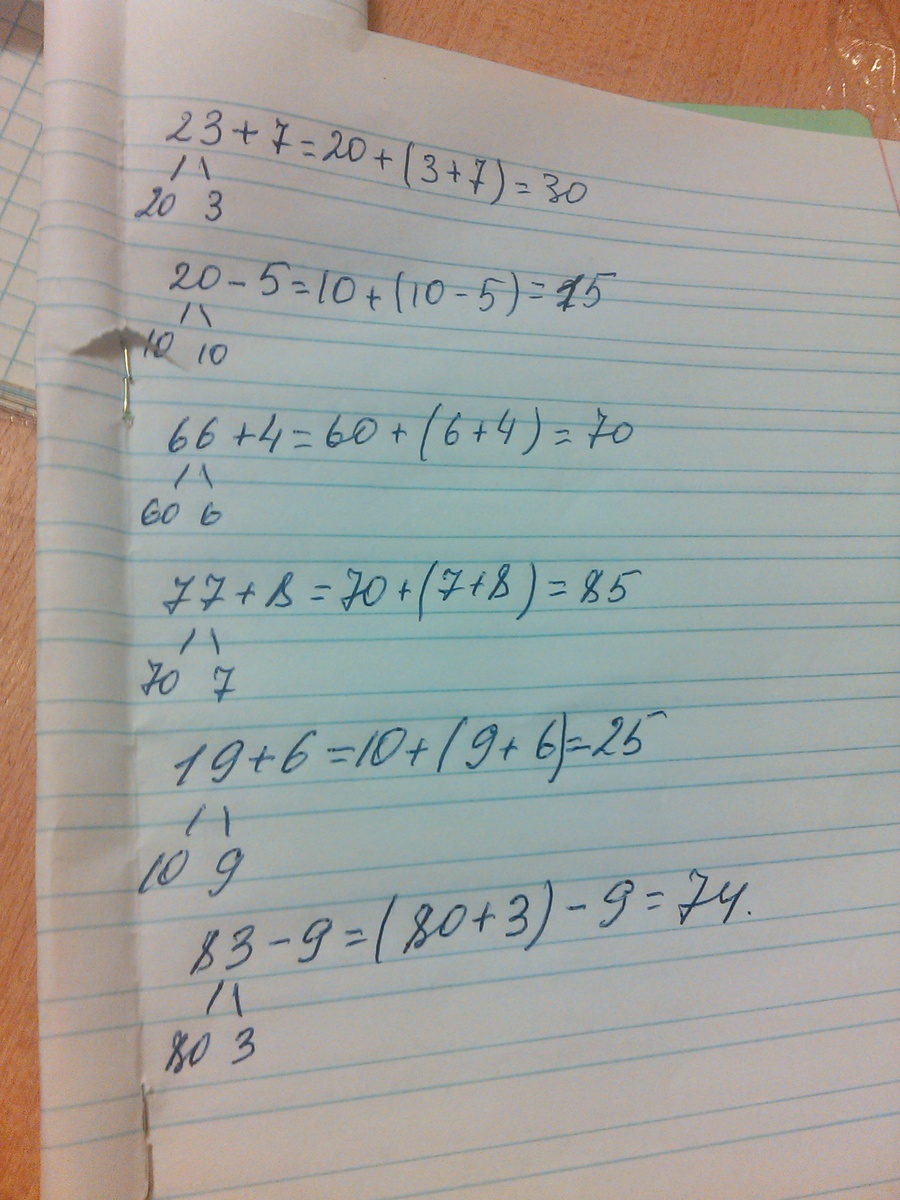 23+7=20+(3+7)=30
/ \
20 3
20-5=10+(10-5)=15
/ \
10 10
66+4=60+(6+4)=70
/ \
60 6
77+8=70+(7+8)=85
/ \
70 7
19+6=10+(9+6)=25
/ \
10 9
83-9=(80+3)-9=74.
/ \
80 3